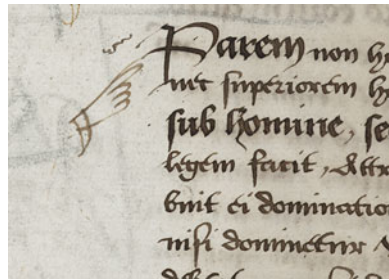 Parem non h
nec superiorem h
sub homine, se
legem facit, Attr
buit ei dominatio
nisi dominetur